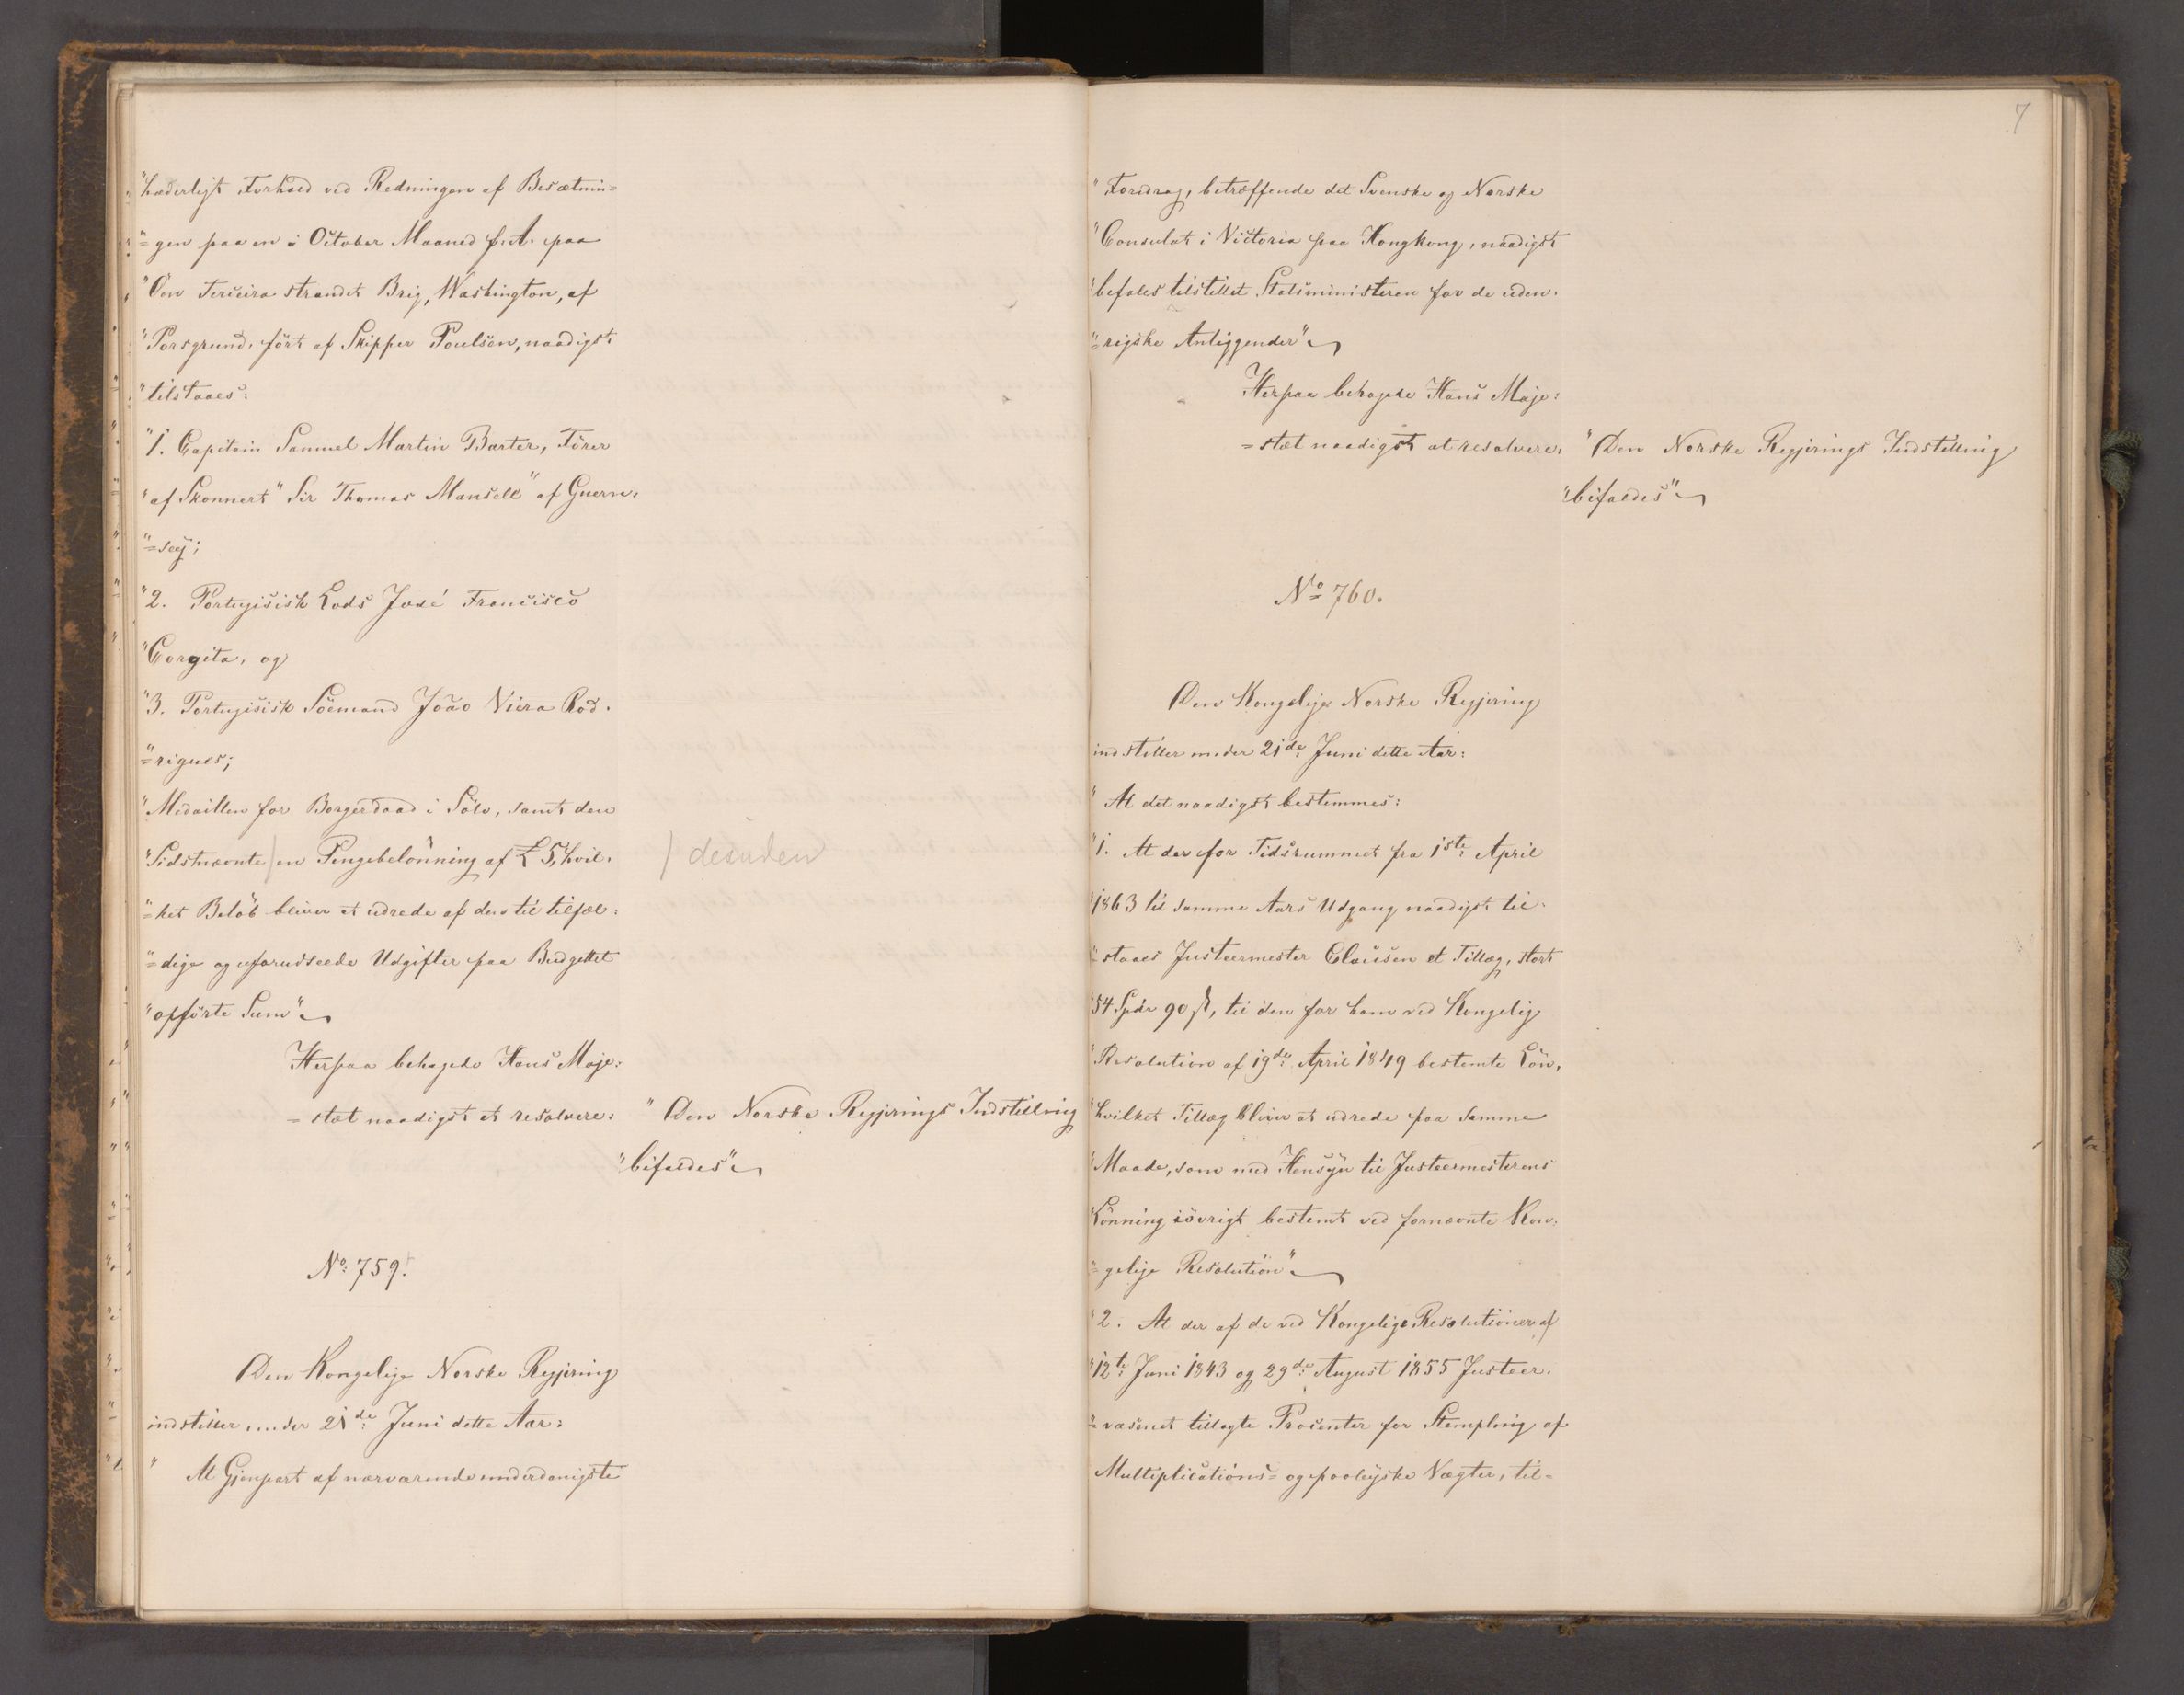 "hæderligt Forhold ved Redningen af Besætnin=
"=gen paa en i October Maaned f. A. paa
"Öen Terceira strandet Brig, Washington, af
"Porsgrund, fört af Skipper Poulsen, naadigst
"tilstaaes:
"1. Capitain Samuel Martin Barter, Förer
"af Skonnert "Sir Thomas Mansell" af Guern=
"=sey;
"2. Portugisisk Lods José Francisco
"Gorgita, og
"3. Portugisisk Sömand João Viera Rod=
"=rigues;
"Medaillen for Borgerdaad i Sölv, samt den
"Sidstnævnte / en Pengebelönning af £ 5, hvil=
/ desuden
"=ket Belöb bliver at udrede af den til tilfæl=
"=dige og uforudseede Udgifter paa Budgettet
"opförte Sum"
Herpaa behagede Hans Maje=
=stæt naadigst at resolvere: "Den Norske Regjerings Indstilling
"bifaldes"
No: 759.
Den Kongelige Norske Regjering
indstiller under 21de Juni dette Aar:
" At Gjenpart af nærværende underdanigste
7
"Foredrag, betræffende det Svenske og Norske
"Consulat i Victoria paa Hongkong, naadigst
"befales tilstillet Statsministeren for de uden=
"=rigske Anliggender"
Herpaa behagede Hans Maje=
=stæt naadigst at resolvere: "Den Norske Regjerings Indstilling
"bifaldes"
No 760.
Den Kongelige Norske Regjering
indstiller under 21de Juni dette Aar:
"At det naadigst bestemmes:
"1. At der for Tidsrummet fra 1ste April
"1863 til samme Aars Udgang naadigst til=
"=staaes Justeermester Clausen et Tillæg, stort
"54 Spdr 90 ß, til den for ham ved Kongelig
"Resolution af 19de April 1849 bestemte Lön,
"hvilket Tillæg bliver at udrede paa samme
"Maade, som med Hensyn til Justeermesterens
"Lönning iövrigt bestemt ved fornævnte Kon=
"=gelige Resolution"
"2. At der af de ved Kongelige Resolutioner af
"12te Juni 1843 og 29de August 1855 Justeer=
"=væsenet tillagte Procenter for Stempling af
Multiplications= og prøiske Vægter, til=